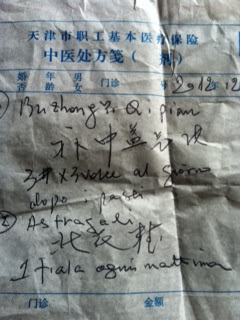 天津市职工基本医疗保险
中医处方笺（ 剂）
婚 年 男 门诊
否 龄 女
1) Bu zhong Yi Qi pian
补中益气片
3# x 3 volte al giorno
dopo i pasti
2) Astragali
北芪精
1 Fiala ogni mattina
门诊 金额